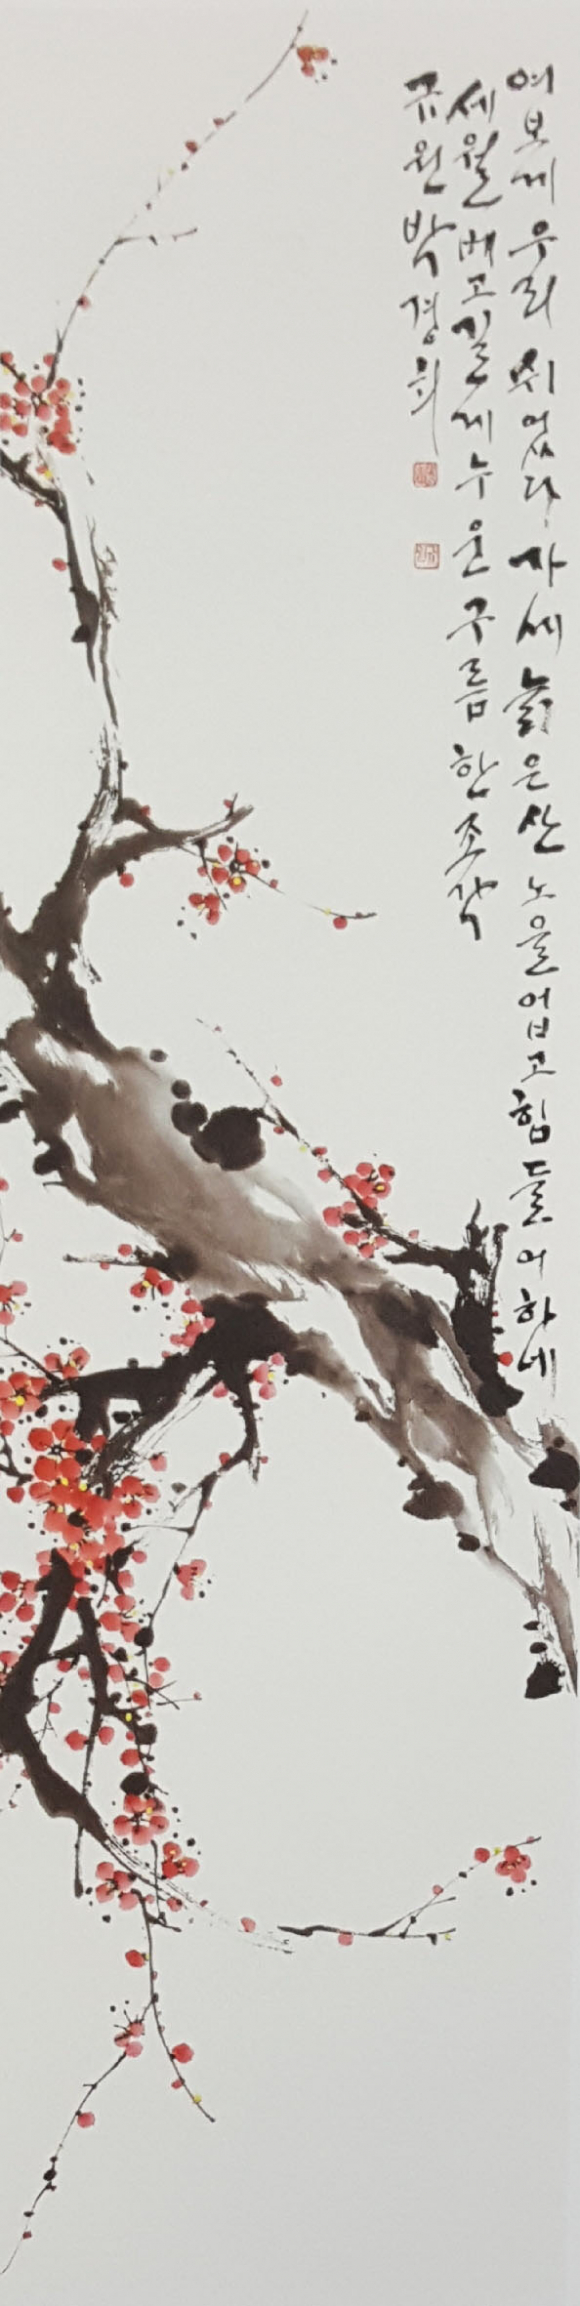 여보게 우리 쉬었다 가세 늙은 산 노을 업고 힘들어 하네
세월 베고 길게 누운 구름 한 조각
규원 박경희